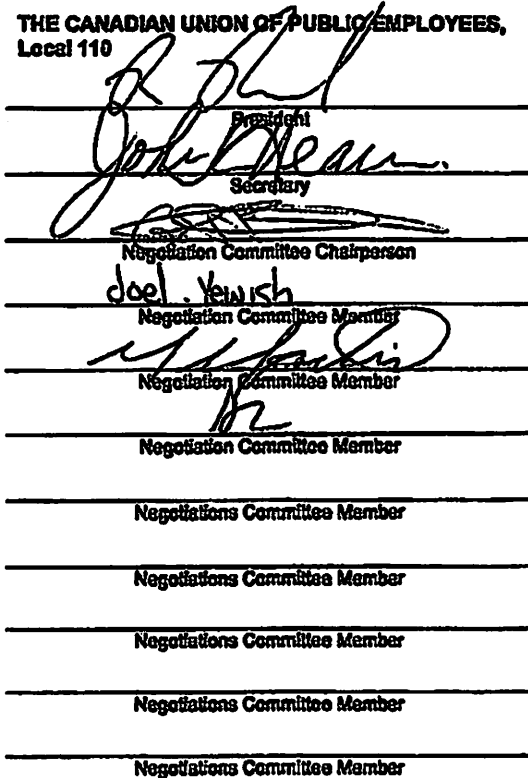 THE CANADIAN UNION OF PUBLIC EMPLOYEES,
Local 110
President
John
Secretary
Negotiation Committee Chairperson
Joel. Yewish
Negotiation Committee Member
Negotiation Committee Member
Negotiation Committee Member
Negotiations Committee Member
Negotiations Committee Member
Negotiations Committee Member
Negotiations Committee Member
Negotiations Committee Member